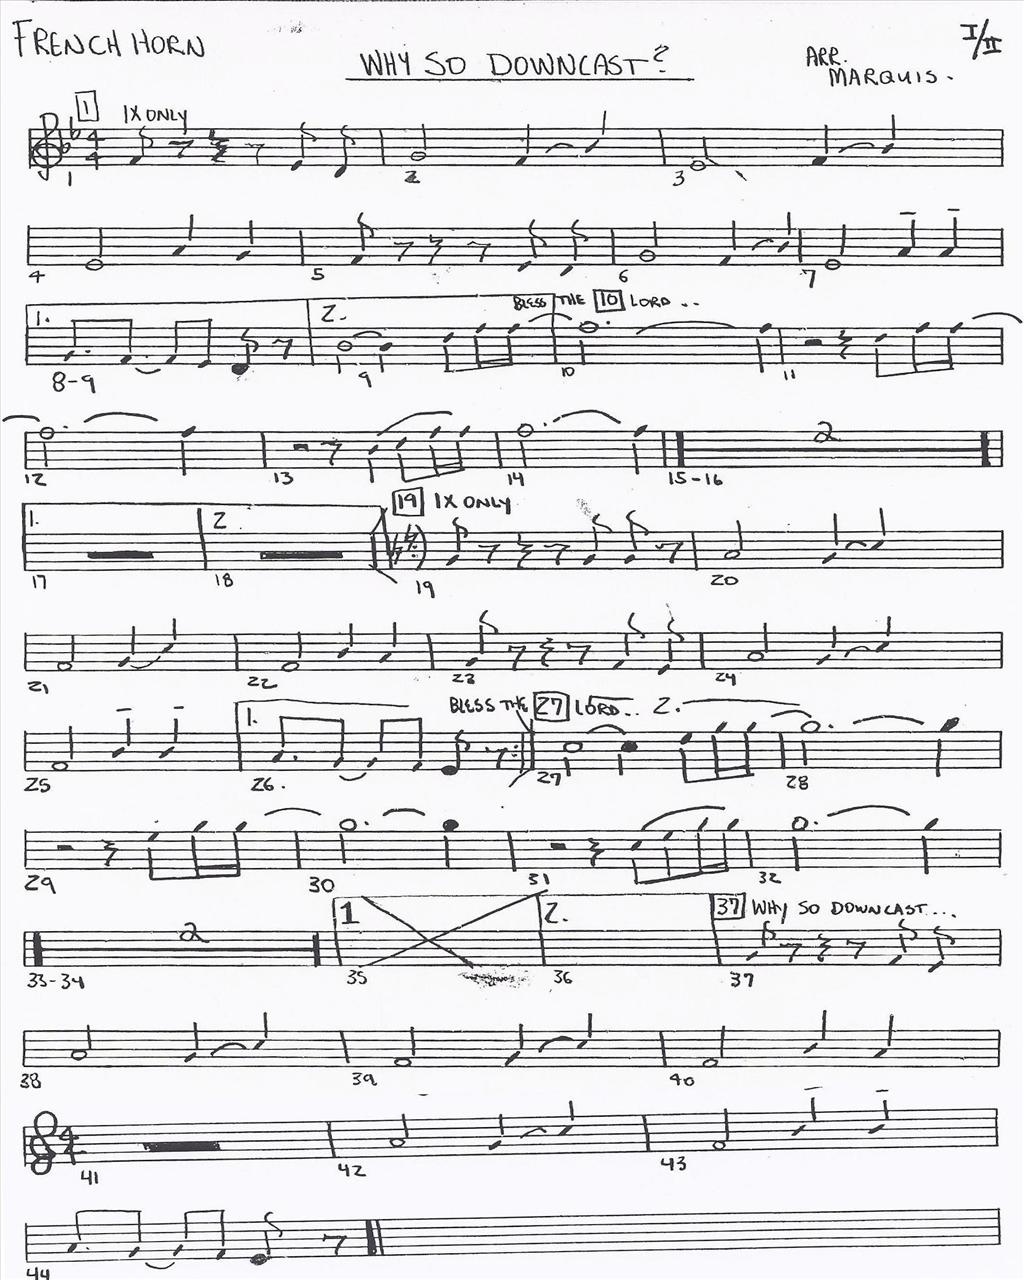 FRENCH HORN
I/II
WHY SO DOWNCAST?
ARR.
MARQUIS.
1 1X ONLY
4
4
1 2 3
4 5 6 7
1. 2. BLESS THE 10 LORD ..
8-9 9 10 11
2
12 13 14 15-16
1. 2 19 1X ONLY
17 18 19 20
21 22 23 24
1. BLESS THE 27 LORD.. 2.
25 26. 27 28
29 30 31 32
2 1 2. 37 WHY SO DOWNCAST...
33-34 35 36 37
38 39 40
4
4
41 42 43
44